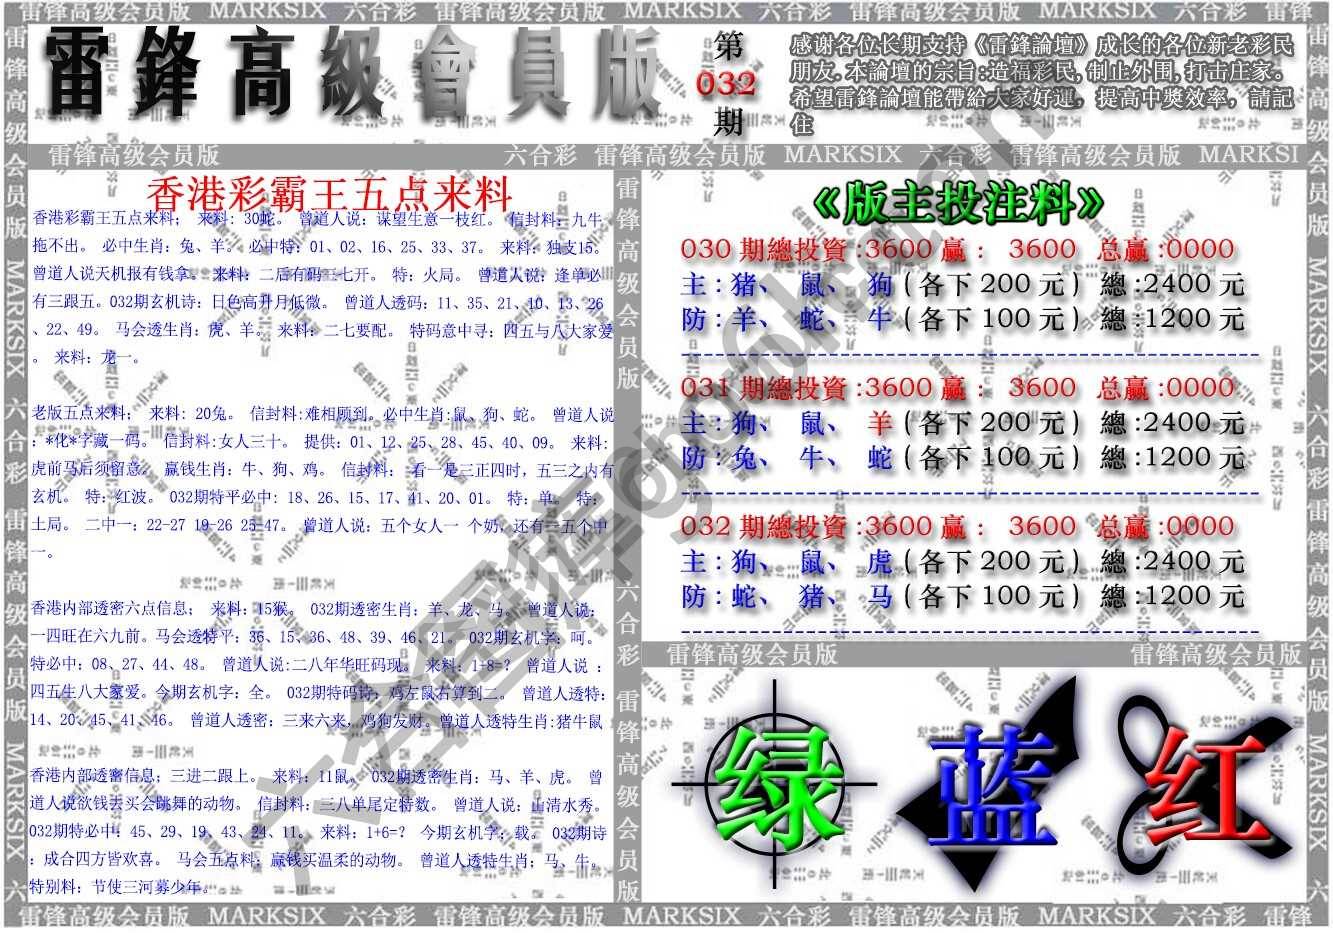 雷锋高级会员版 MARKSIX 六合彩 雷锋高级会员版 MARKSIX 六合彩 雷锋高级会员版 MARKSIX 六合彩 雷锋
雷鋒高級會員版
第
032
期
感谢各位长期支持《雷鋒論壇》成长的各位新老彩民
朋友.本論壇的宗旨:造福彩民,制止外围,打击庄家。
希望雷鋒論壇能帶給大家好運，提高中獎效率，請記
住
雷锋高级会员版 六合彩 雷锋高级会员版 MARKSIX 六合彩 雷锋高级会员版 MARKSI
香港彩霸王五点来料
香港彩霸王五点来料； 来料: 30蛇。 曾道人说: 谋望生意一枝红。 信封料: 九牛
拖不出。 必中生肖: 兔、羊。 必中特: 01、02、16、25、33、37。 来料: 独支15。
曾道人说天机报有钱拿。 来料: 二后有码三七开。 特: 火局。 曾道人说: 逢单必
有三跟五。032期玄机诗: 日色高升月低微。 曾道人透码: 11、35、21、10、13、26
、22、49。 马会透生肖: 虎、羊。 来料: 二七要配。 特码意中寻: 四五与八大家爱
。 来料: 龙一。
老版五点来料； 来料: 20兔。 信封料:难相顾到。必中生肖:鼠、狗、蛇。 曾道人说
: *化*字藏一码。 信封料:女人三十。 提供: 01、12、25、28、45、40、09。 来料:
虎前马后须留意。 赢钱生肖: 牛、狗、鸡。 信封料: 一看一是三正四时, 五三之内有
玄机。 特: 红波。 032期特平必中: 18、26、15、17、41、20、01。 特: 单。 特:
土局。 二中一: 22-27 19-26 25-47。 曾道人说: 五个女人一 个奶, 还有一五个中
一。
香港内部透密六点信息； 来料: 15猴。 032期透密生肖: 羊、龙、马。 曾道人说:
一四旺在六九前。马会透特平: 36、15、36、48、39、46、21。 032期玄机字: 呵。
特必中: 08、27、44、48。 曾道人说:二八年华旺码现。 来料: 1+8=？ 曾道人说 :
四五生八大家爱。今期玄机字: 全。 032期特码诗: 鸡左鼠右算到二。 曾道人透特:
14、20、45、41、46。 曾道人透密: 三来六来, 鸡狗发财。曾道人透特生肖:猪牛鼠
香港内部透密信息；三进二跟上。 来料: 11鼠。 032期透密生肖: 马、羊、虎。 曾
道人说欲钱去买会跳舞的动物。 信封料: 三八单尾定特数。 曾道人说: 山清水秀。
032期特必中: 45、29、19、43、24、11。 来料: 1+6=？ 今期玄机字: 载。 032期诗
: 成合四方皆欢喜。 马会五点料: 赢钱买温柔的动物。 曾道人透特生肖: 马、牛。
特别料: 节使三河募少年。
《版主投注料》
030 期總投資 :3600 赢 : 3600 总赢 :0000
主 : 猪、 鼠、 狗 ( 各下 200 元 ) 總 :2400 元
防 : 羊、 蛇、 牛 ( 各下 100 元 ) 總 :1200 元
031 期總投資 :3600 赢 : 3600 总赢 :0000
主 : 狗、 鼠、 羊 ( 各下 200 元 ) 總 :2400 元
防 : 兔、 牛、 蛇 ( 各下 100 元 ) 總 :1200 元
032 期總投資 :3600 赢 : 3600 总赢 :0000
主 : 狗、 鼠、 虎 ( 各下 200 元 ) 總 :2400 元
防 : 蛇、 猪、 马 ( 各下 100 元 ) 總 :1200 元
雷锋高级会员版 雷锋高级会员版
绿 蓝 红
雷锋高级会员版 MARKSIX 六合彩 雷锋高级会员版 MARKSIX 六
雷锋高级会员版 六合彩 雷锋高级会员版
雷锋高级会员版 MARKSIX 六合彩 雷锋高级会员版 MARKSIX 六
雷锋高级会员版 MARKSIX 六合彩 雷锋高级会员版 MARKSIX 六合彩 雷锋高级会员版 MARKSIX 六合彩 雷锋